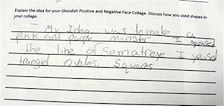 Explain the idea for your Ghoulish Positive and Negative Face Collage. Discuss how you used shapes in
your collage.
My Idea was to make a
pink and purple minster I
the line of sematrey I yused
trangel ovbles Sqwares